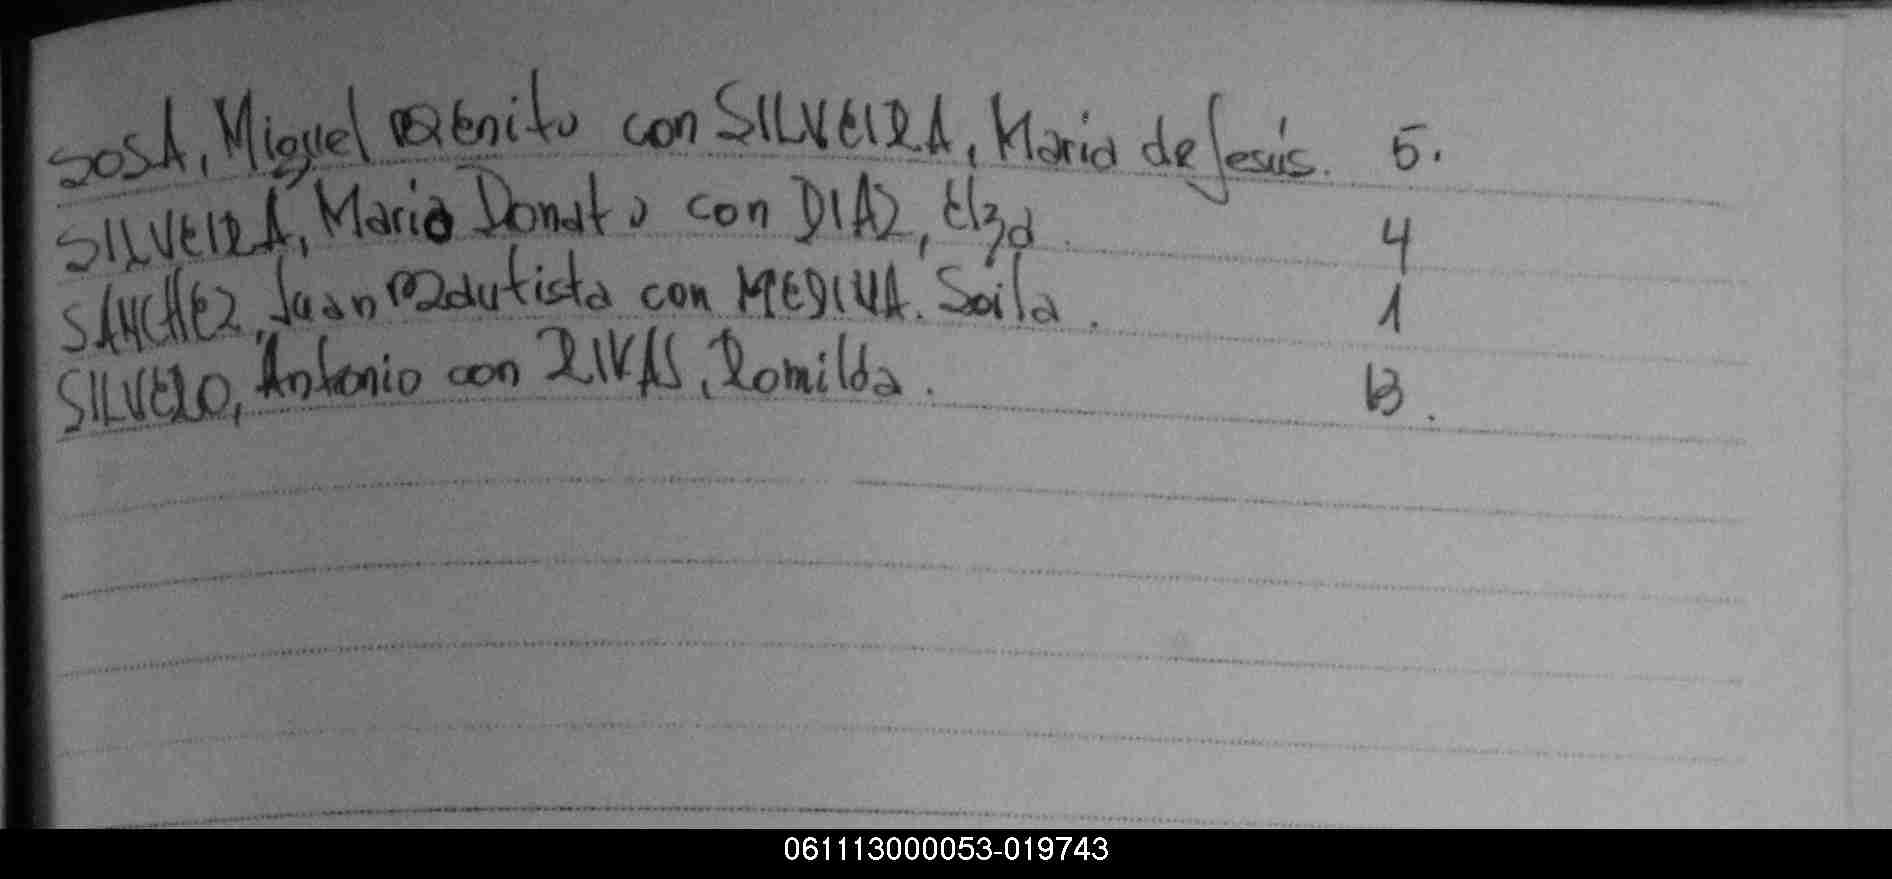 SOSA, Miguel Benito con SILVEIRA, Maria de Jesús. 5.
SILVEIRA, Mario Donato con DIAZ, Elza. 4
SANCHEZ, Juan Bautista con MEDINA. Soila. 1
SILVERO, Antonio con RIVAS, Romilda. 13.
061113000053-019743